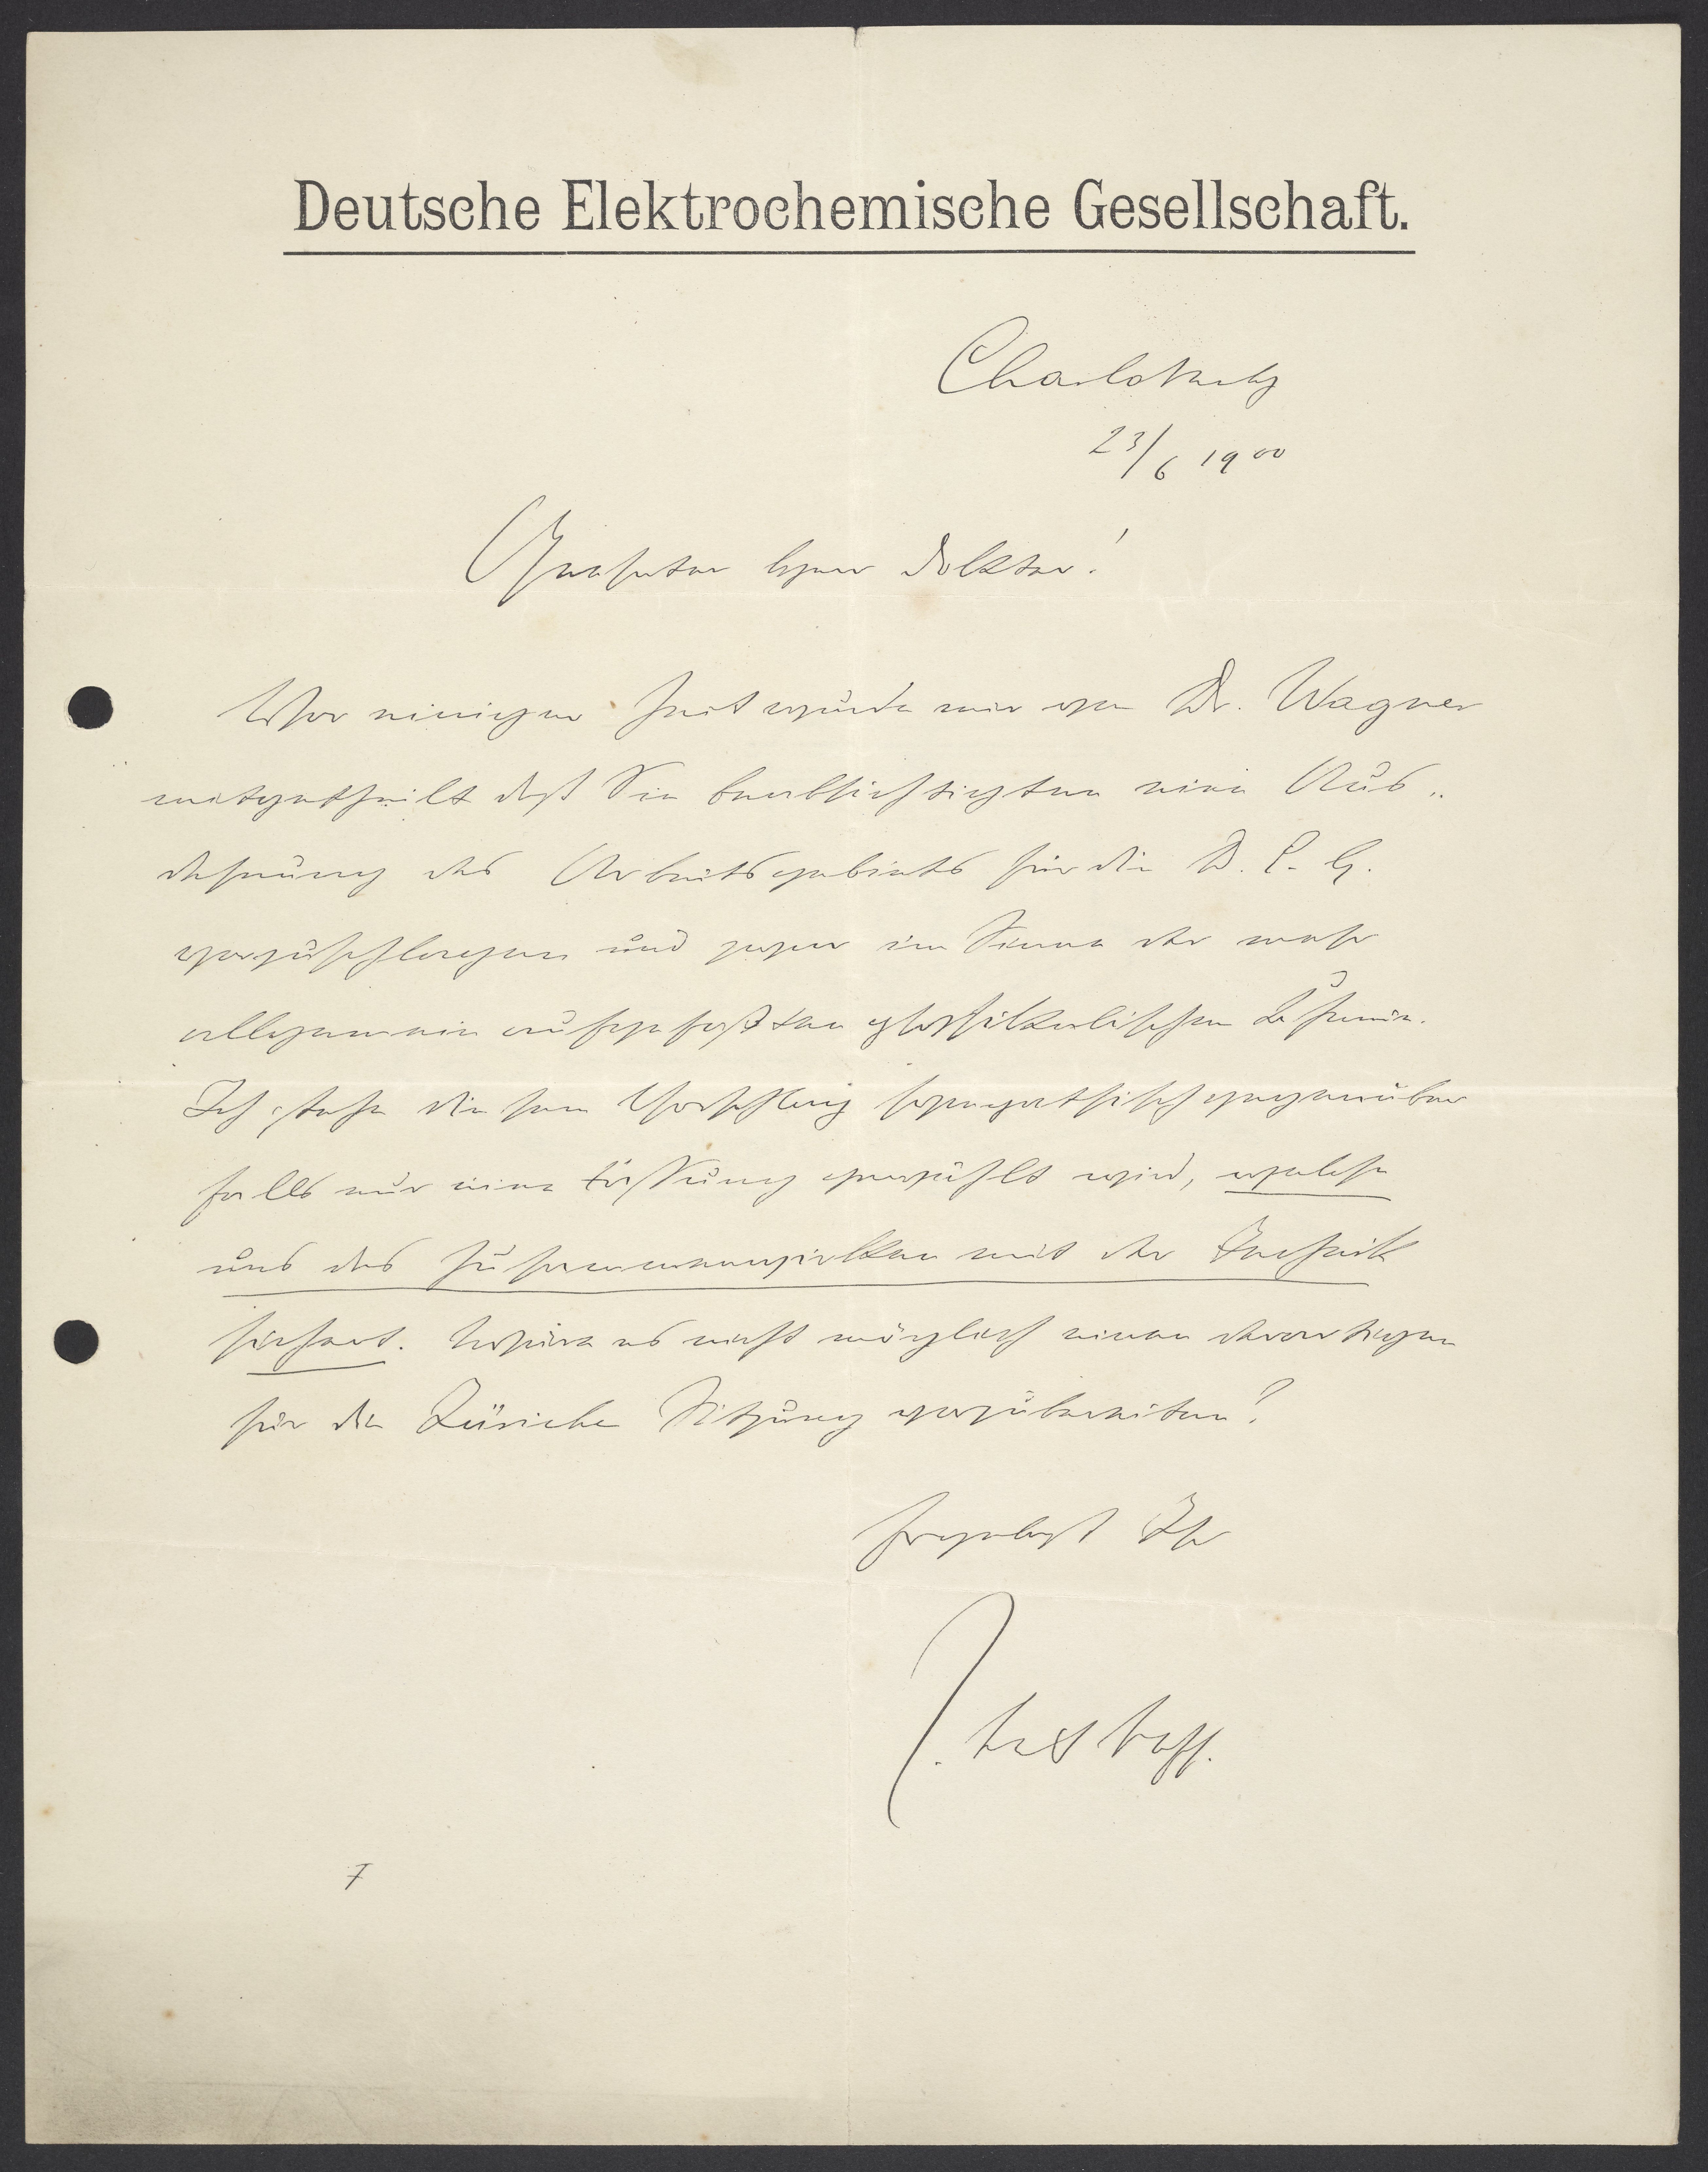 Deutsche Elektrochemische Gesellschaft.
Charlottenbg
23/6 1900
Geehrter Herr Doktor!
Vor einiger Zeit wurde mir von Dr. Wagner
mitgetheilt daß Sie beabsichtigten eine Aus„
dehnung des Arbeitsgebiets für die D. E. G.
vorzuschlagen und zwar im Sinne der mehr
allgemein aufgefaßten physikalischen Chemie.
Ich stehe diesem Vorschlag sympathisch gegenüber
falls nur eine Fassung gewählt wird, welche
uns das Zusammenwirken mit der Technik
sichert. Wäre es nicht möglich einen derartigen
für die Züricher Sitzung vorzubereiten?
Ergebenst Ihr
J. H. van't Hoff.
7